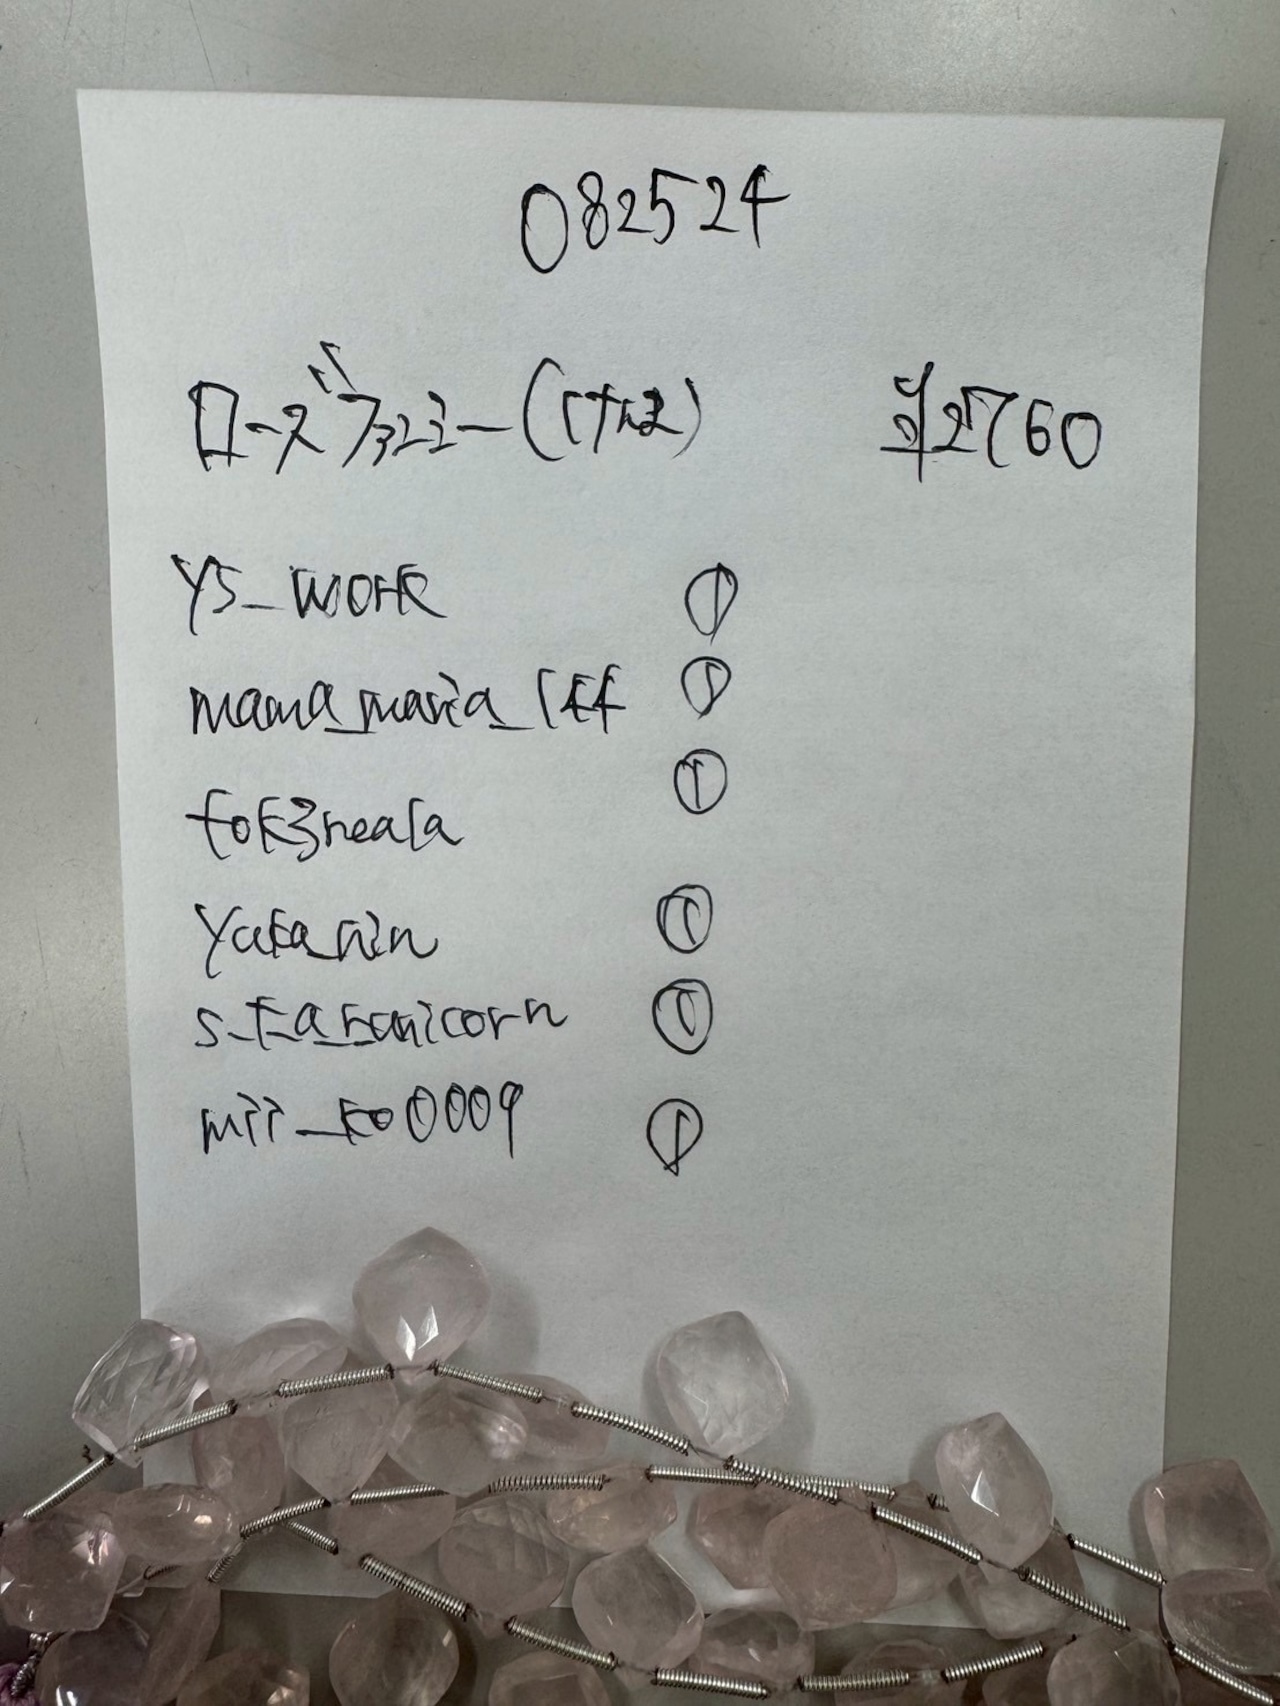 082524
ローズファンシー(けなは) ¥2760
ys_work ①
mama_maria_144 ①
tok3neala ①
yuka_nin ①
s_ta_runicorn ①
mii_ko0009 ①